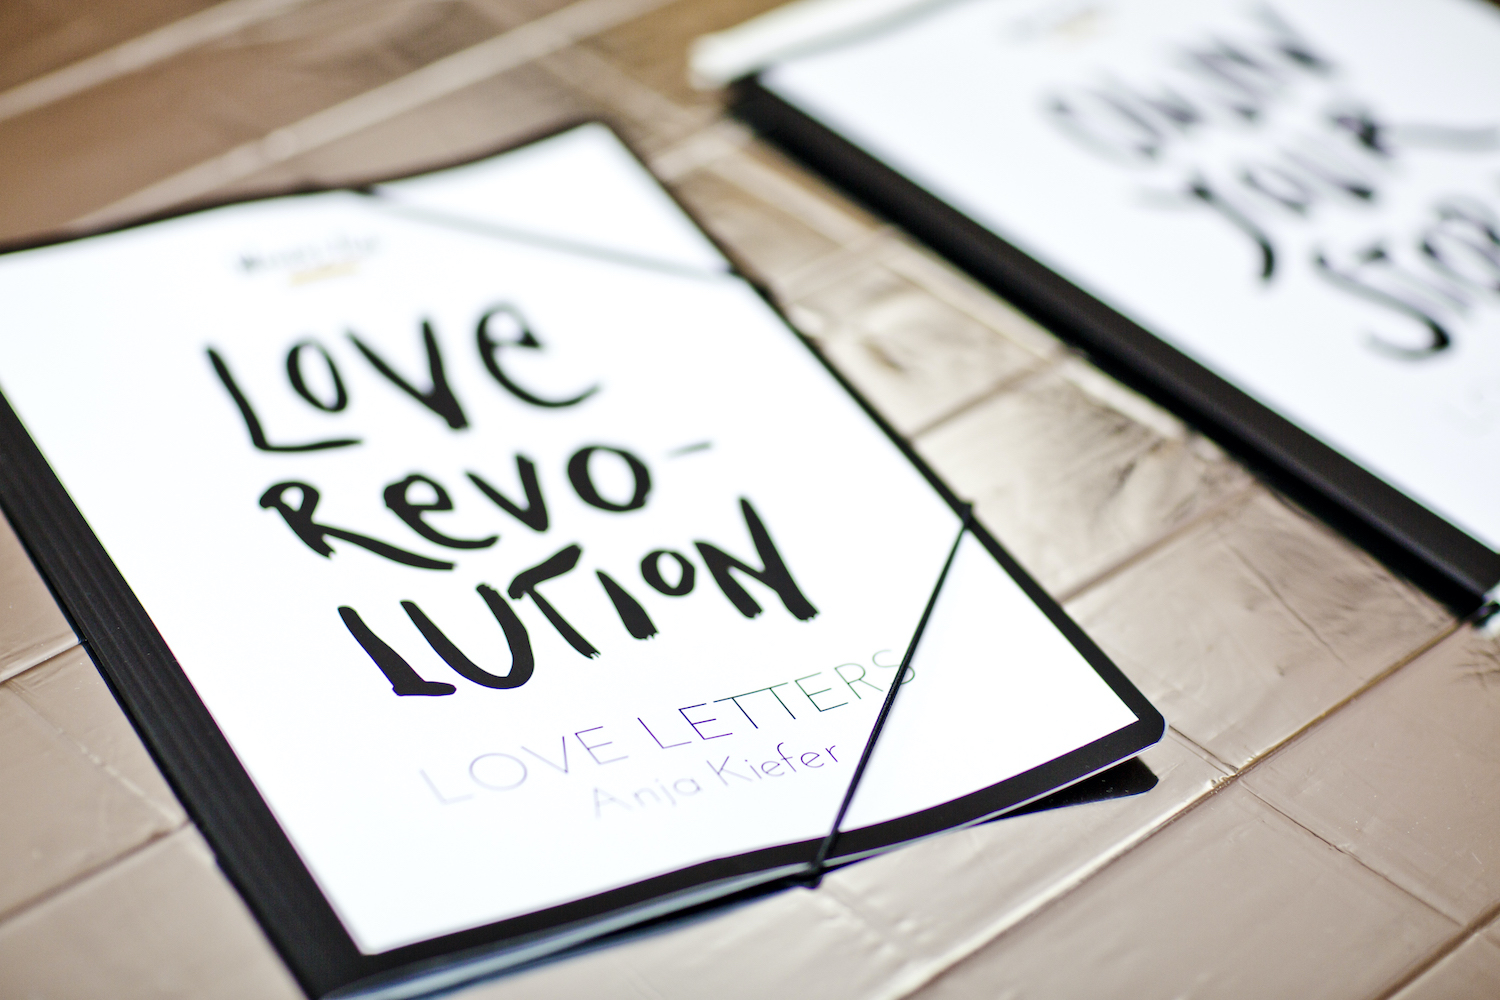 LOVE
REVO-
LUTION
LOVE LETTERS
Anja Kiefer
OWN
YOUR